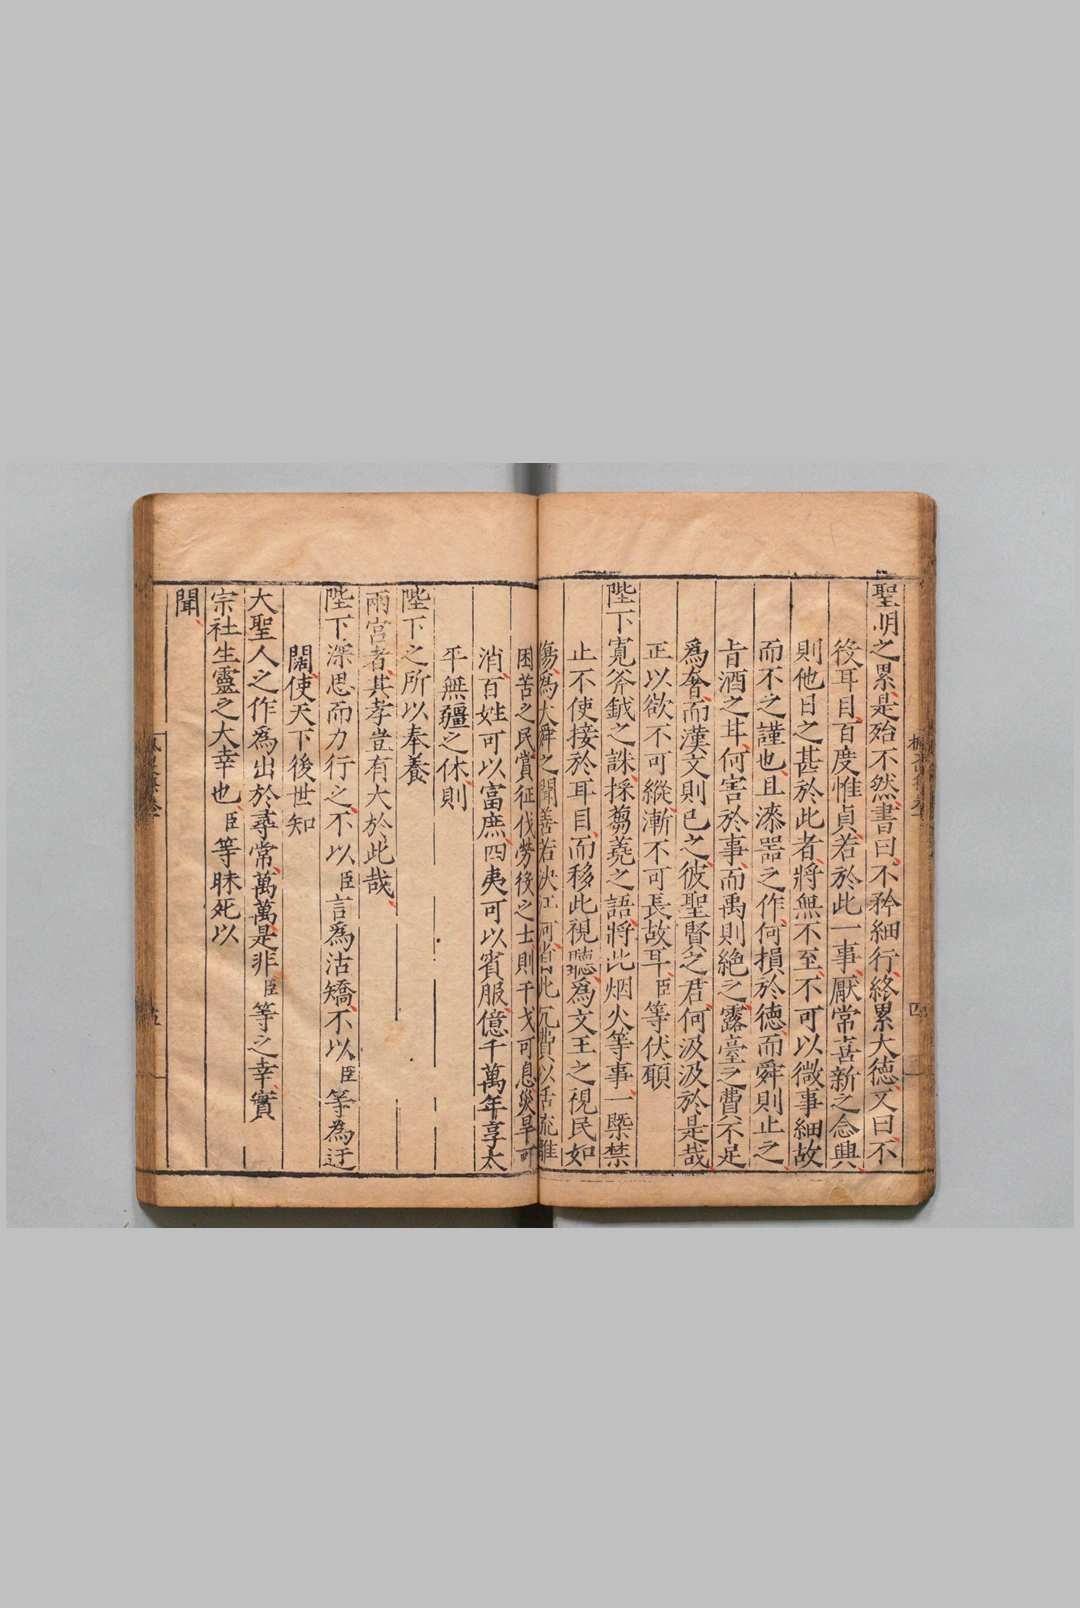 聖明之累是殆不然書曰不矜細行終累大德又曰不
後耳目百度惟貞若於此一事厭常喜新之念興
則他日之甚於此者將無不至不可以微事細故
而不之謹也且漆器之作何損於德而舜則止之
旨酒之甘何害於事而禹則絶之露臺之費不足
爲奢而漢文則已之彼聖賢之君何汲汲於是哉
正以欲不可縱漸不可長故耳臣等伏願
陛下寬斧鉞之誅採蒭蕘之語將此烟火等事一槩禁
止不使接於耳目而移此視聽爲文王之視民如
傷爲大舜之聞善若決江河省此冗費以活流離
困苦之民賞征伐勞後之士則干戈可息災旱可
消百姓可以富庶四夷可以賓服億千萬年享太
平無疆之休則
陛下之所以奉養
兩宮者其孝豈有大於此哉
陛下深思而力行之不以臣言爲沽矯不以臣等為迂
闊使天下後世知
大聖人之作爲出於尋常萬萬是非臣等之幸實
宗社生靈之大幸也臣等昧死以
聞